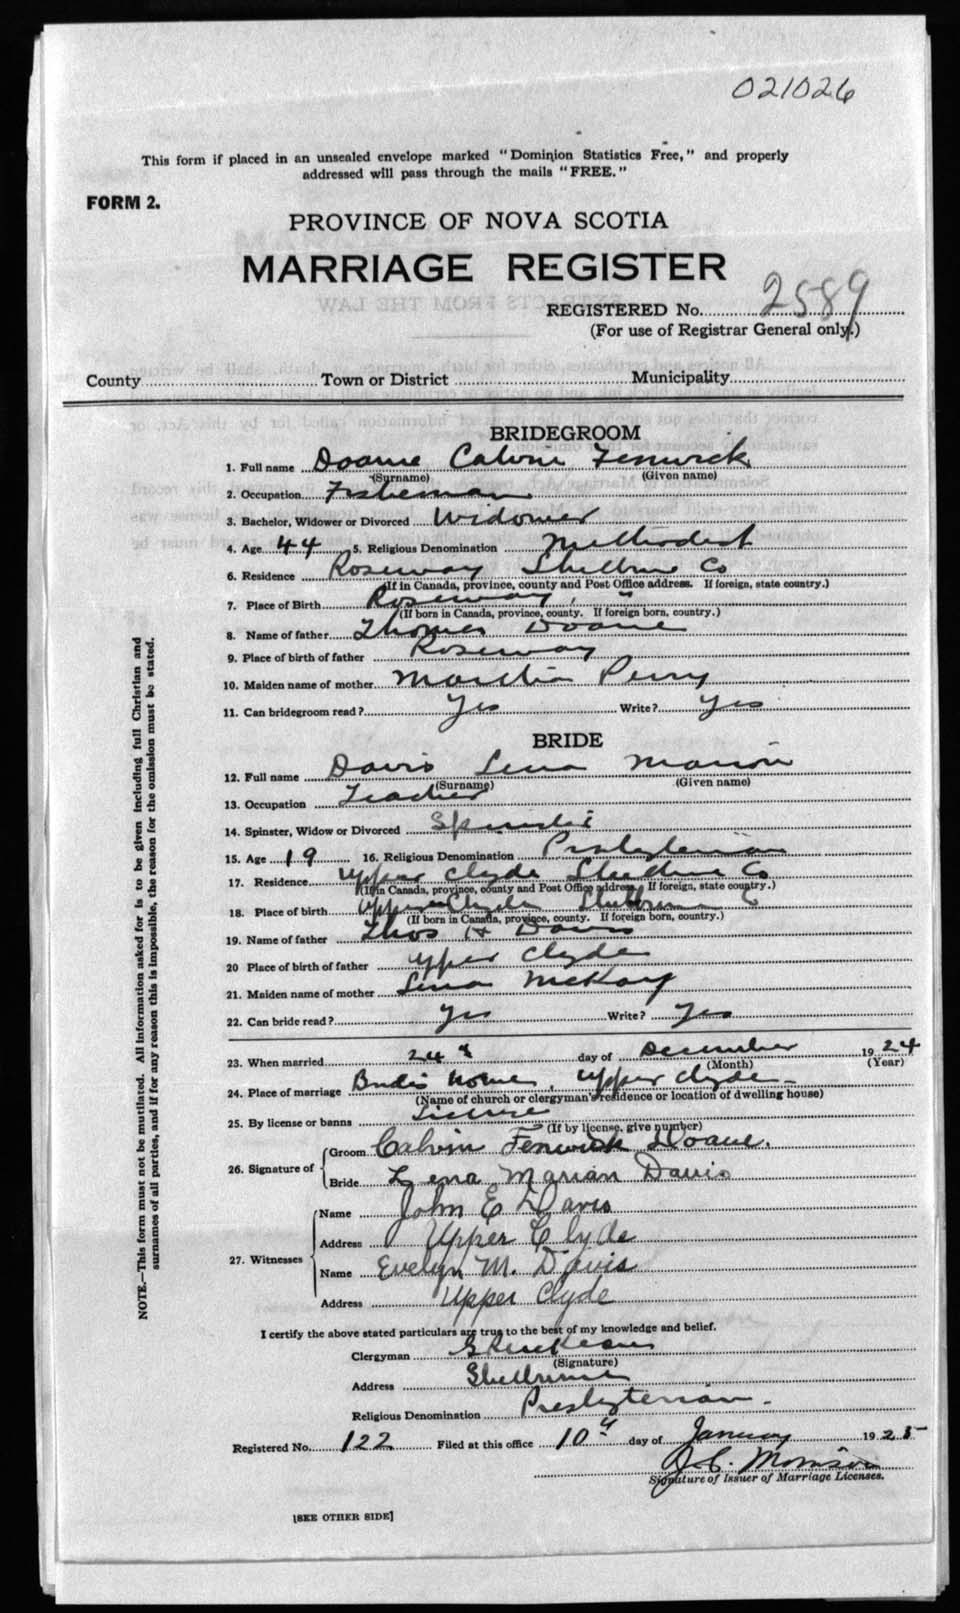 021026
This form if placed in an unsealed envelope marked "Dominion Statistics Free," and properly
addressed will pass through the mails "FREE."
FORM 2.
PROVINCE OF NOVA SCOTIA
MARRIAGE REGISTER
REGISTERED No. 2589
(For use of Registrar General only.)
County Town or District Municipality
BRIDEGROOM
1. Full name Doane Calvin Fenwick
(Surname) (Given name)
2. Occupation Fisherman
3. Bachelor, Widower or Divorced Widower
4. Age 44 5. Religious Denomination Methodist
6. Residence Roseway Shelburne Co
(If in Canada, province, county and Post Office address. If foreign, state country.)
7. Place of Birth Roseway, "
(If born in Canada, province, county. If foreign born, country.)
8. Name of father Thomas Doane
9. Place of birth of father Roseway
10. Maiden name of mother Martha Perry
11. Can bridegroom read? Yes Write? Yes
BRIDE
12. Full name Davis Lena Marion
(Surname) (Given name)
13. Occupation Teacher
14. Spinster, Widow or Divorced Spinster
15. Age 19 16. Religious Denomination Presbyterian
17. Residence Upper Clyde Shelburne Co
(If in Canada, province, county and Post Office address. If foreign, state country.)
18. Place of birth Upper Clyde Shelburne C
(If born in Canada, province, county. If foreign born, country.)
19. Name of father Thos H Davis
20 Place of birth of father Upper Clyde
21. Maiden name of mother Lena McKay
22. Can bride read? Yes Write? Yes
23. When married 24th day of December 1924
(Month) (Year)
24. Place of marriage Brides home, Upper Clyde
(Name of church or clergyman's residence or location of dwelling house)
25. By license or banns License
(If by license, give number)
26. Signature of
Groom Calvin Fenwick Doane.
Bride Lena Marian Davis
27. Witnesses
Name John E Davis
Address Upper Clyde
Name Evelyn M. Davis
Address Upper Clyde
I certify the above stated particulars are true to the best of my knowledge and belief.
Clergyman
(Signature)
Address Shelburne
Religious Denomination Presbyterian.
Registered No. 122 Filed at this office 10th day of January 1925
J.C. Morrison
Signature of Issuer of Marriage Licenses.
[SEE OTHER SIDE]
NOTE.—This form must not be mutilated. All information asked for is to be given including full Christian and
surnames of all parties, and if for any reason this is impossible, the reason for the omission must be stated.